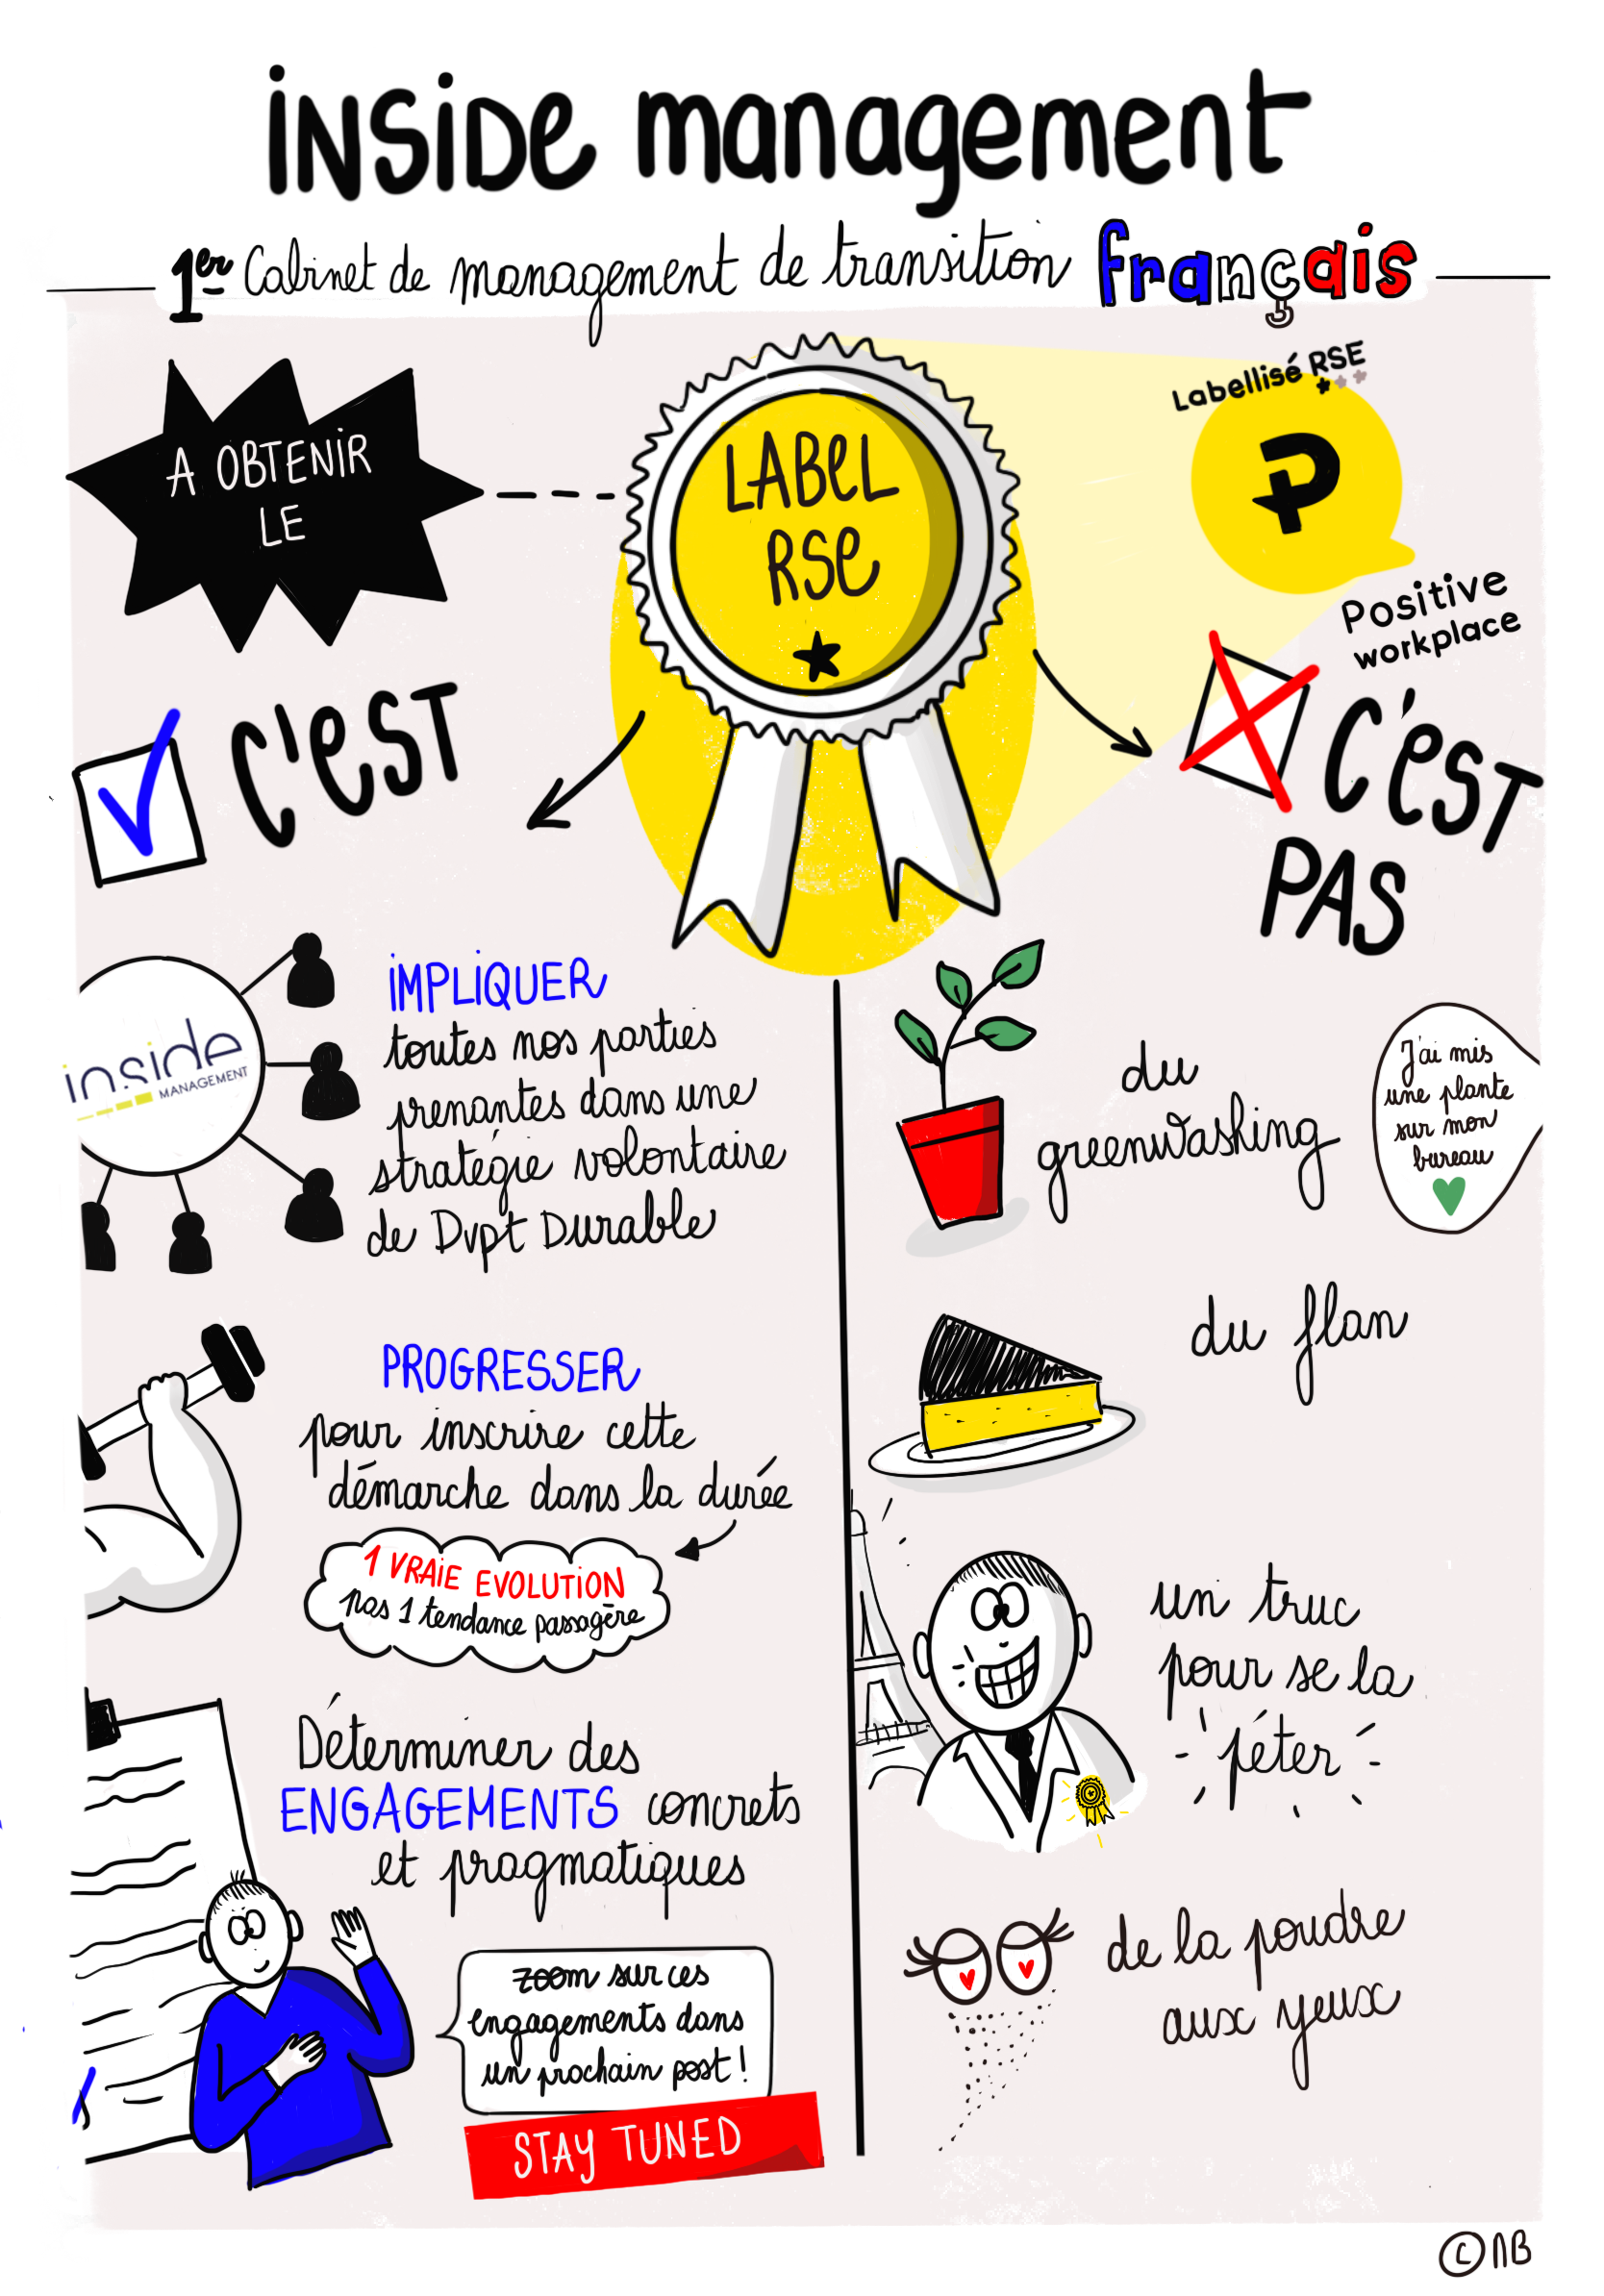 inside management
1er Cabinet de management de transition français
A OBTENIR
LE
LABEL
RSE
Labellisé RSE
P
Positive
workplace
C'EST
C'EST
PAS
inside
MANAGEMENT
IMPLIQUER
toutes nos parties
prenantes dans une
stratégie volontaire
de Dvpt Durable
PROGRESSER
pour inscrire cette
démarche dans la durée
1 VRAIE EVOLUTION
pas 1 tendance passagère
Déterminer des
ENGAGEMENTS concrets
et pragmatiques
zoom sur ces
engagements dans
un prochain post !
STAY TUNED
du
greenwashing
J'ai mis
une plante
sur mon
bureau
du flan
un truc
pour se la
péter
de la poudre
aux yeux
© NB